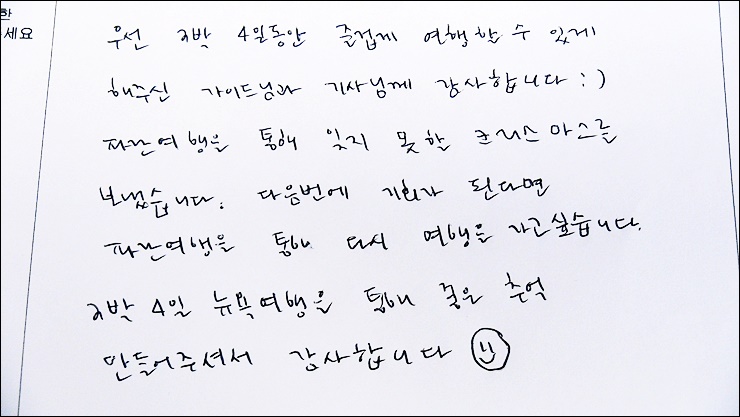 한
세요
우선 3박 4일동안 즐겁게 여행할 수 있게
해주신 가이드님과 기사님께 감사합니다 :)
파란여행을 통해 잊지 못할 크리스마스를
보냈습니다. 다음번에 기회가 된다면
파란여행을 통해 다시 여행을 가고싶습니다.
3박 4일 뉴욕여행을 통해 좋은 추억
만들어주셔서 감사합니다